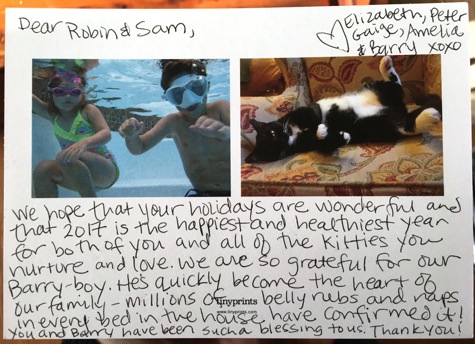 Dear Robin & Sam,
♡ Elizabeth, Peter
Gaige, Amelia
& Barry xoxo
We hope that your holidays are wonderful and
that 2017 is the happiest and healthiest year
for both of you and all of the Kitties you
nurture and love. We are so grateful for our
Barry-boy. He's quickly become the heart of
our family - millions of belly rubs and naps
tinyprints
www.tinyprints.com
in every bed in the house have confirmed it!
You and Barry have been such a blessing to us. Thank you!